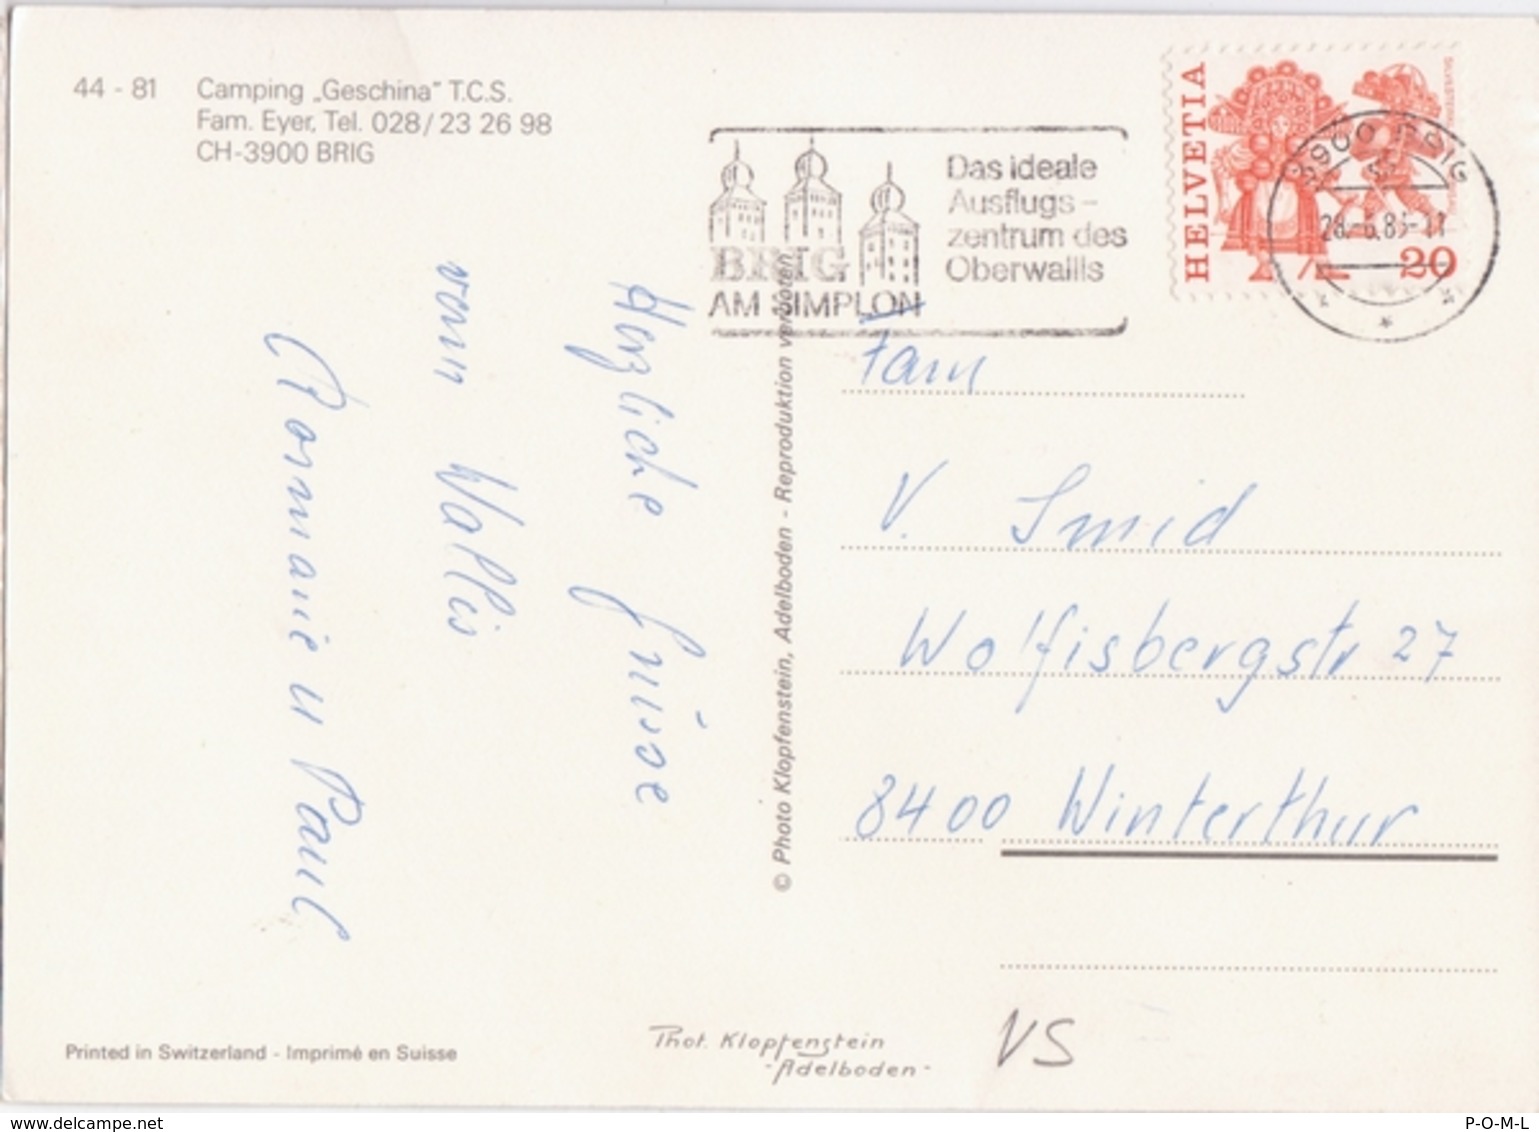 44 - 81 Camping „Geschina" T.C.S.
Fam. Eyer, Tel. 028/23 26 98
CH-3900 BRIG
BRIG
AM SIMPLON
Das ideale
Ausflugs-
zentrum des
Oberwallis
HELVETIA
20
3900 BRIG
Herzliche Grüsse
vom Wallis
Rosmarie u Paul
© Photo Klopfenstein, Adelboden - Reproduktion verboten.
Fam
V. Smid
Wolfisbergstr 27
8400 Winterthur
VS
Printed in Switzerland - Imprimé en Suisse
Phot. Klopfenstein
- Adelboden -
www.delcampe.net
P-O-M-L